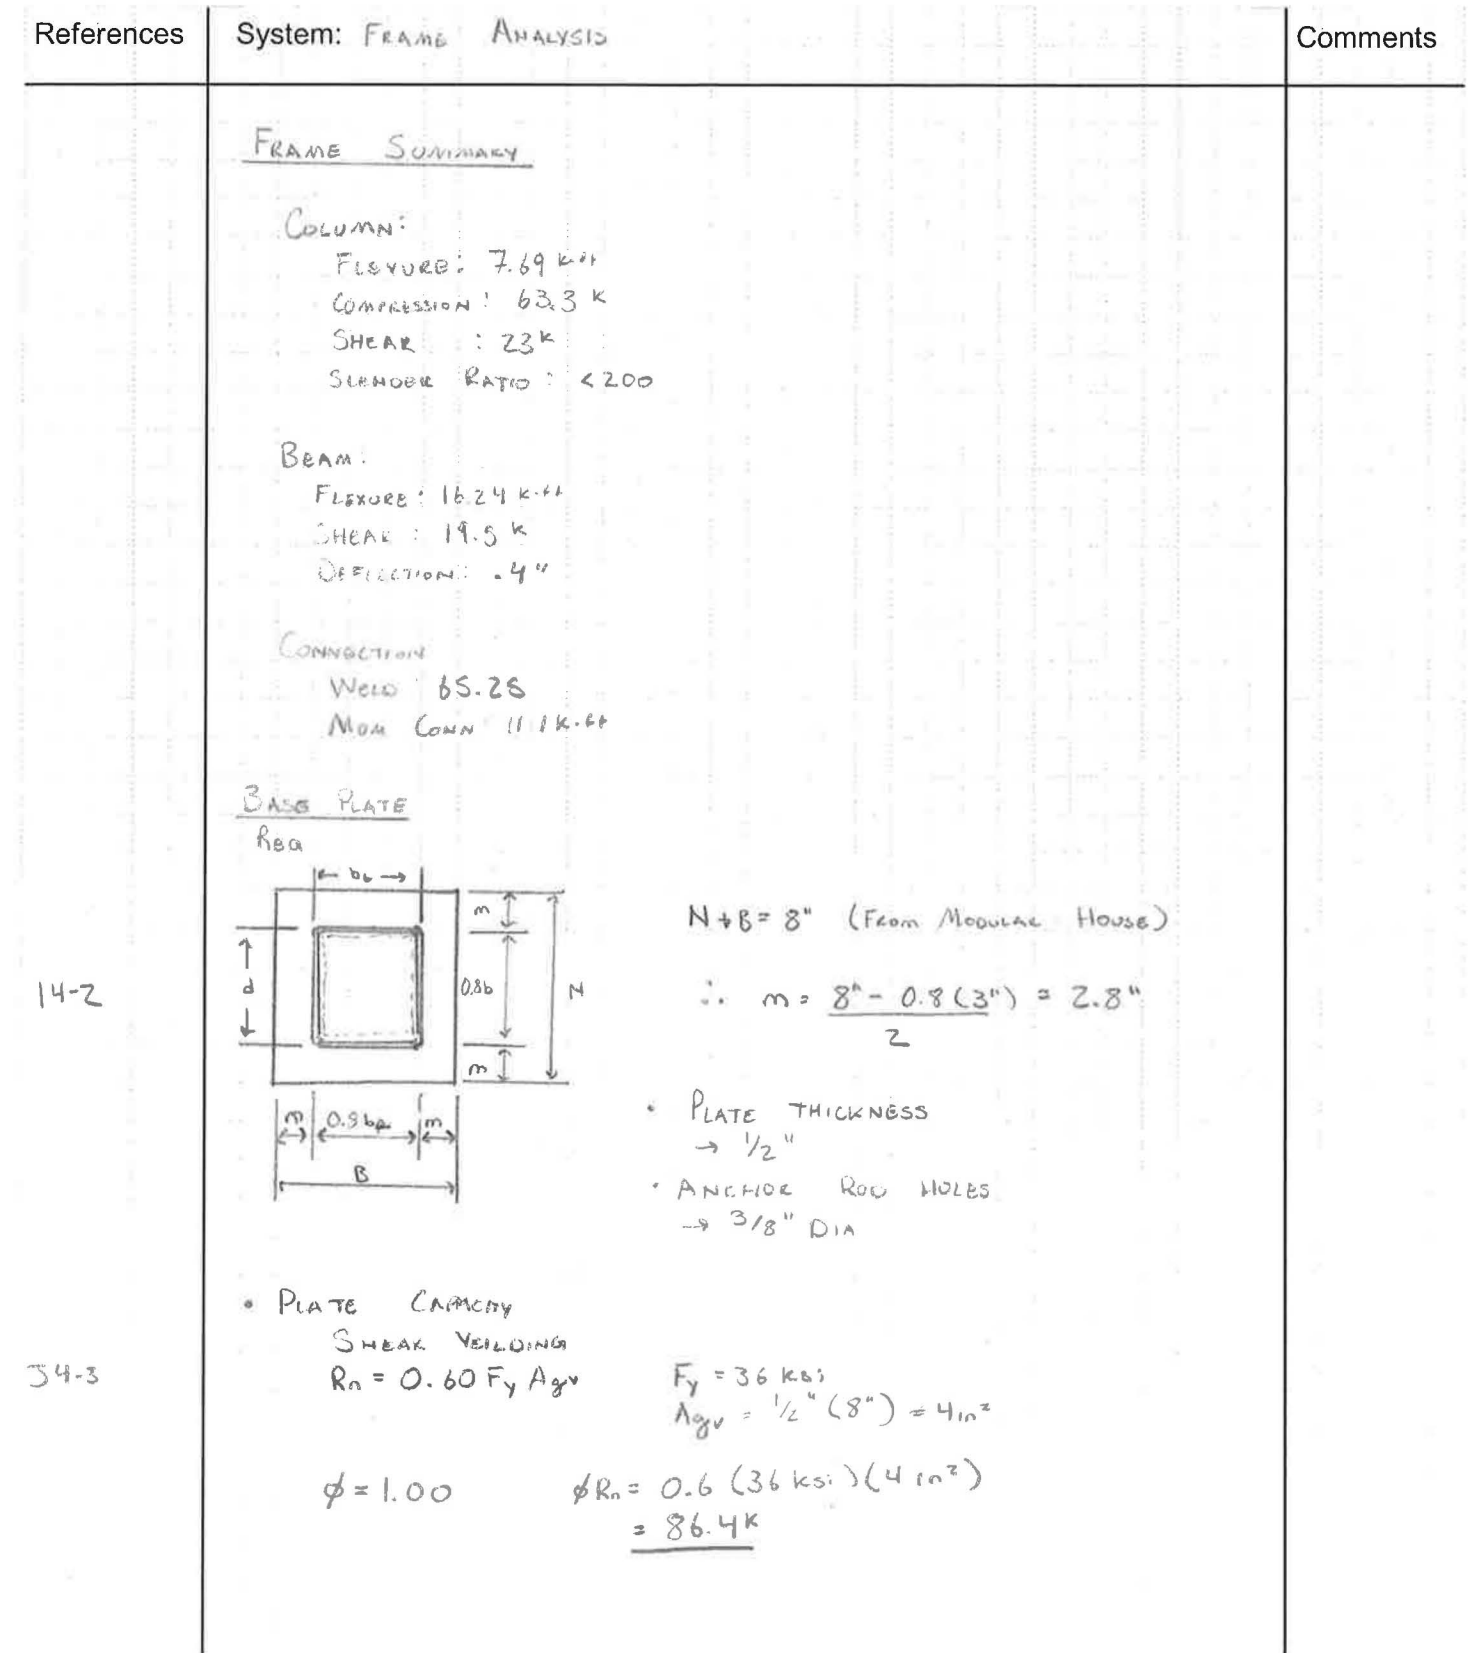 References
System: FRAME ANALYSIS
Comments
FRAME SUMMARY
COLUMN:
FLEXURE: 7.69 k·ft
COMPRESSION: 63.3 K
SHEAR : 23K
SLENDER RATIO: <200
BEAM:
FLEXURE: 16.24 k·ft
SHEAR: 19.5 K
DEFLECTION: .4"
CONNECTION
WELD 65.25
MOM CONN 11.1 K·ft
BASE PLATE
b
m
d
0.8b
N
m
m 0.8b m
B
14-2
N + B = 8" (FROM MODULAR HOUSE)
∴ m = 8" - 0.8(3") = 2.8"
2
• PLATE THICKNESS
→ 1/2"
• ANCHOR ROD HOLES
→ 3/8" DIA
• PLATE CAPACITY
SHEAR YEILDING
J4-3
Rn = 0.60 Fy Agv
Fy = 36 ksi
Agv = 1/2" (8") = 4in²
φ = 1.00
φRn = 0.6 (36 ksi)(4 in²)
= 86.4K